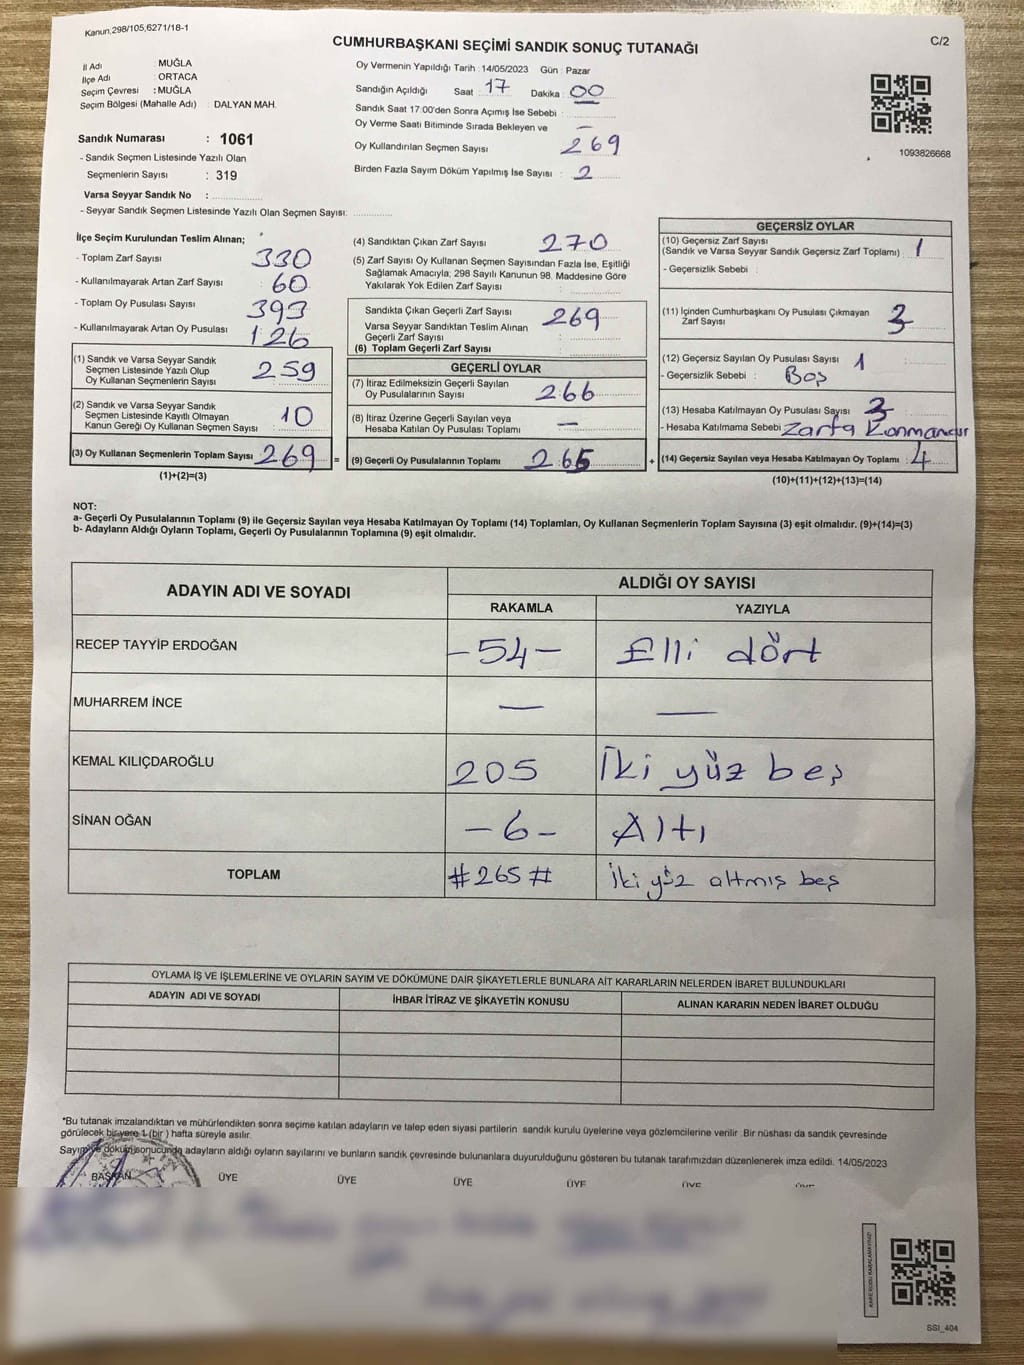 Kanun,298/105,6271/18-1
C/2
CUMHURBAŞKANI SEÇİMİ SANDIK SONUÇ TUTANAĞI
İl Adı MUĞLA
İlçe Adı : ORTACA
Seçim Çevresi : MUĞLA
Seçim Bölgesi (Mahalle Adı) : DALYAN MAH.
Sandık Numarası : 1061
- Sandık Seçmen Listesinde Yazılı Olan
Seçmenlerin Sayısı : 319
Varsa Seyyar Sandık No :
- Seyyar Sandık Seçmen Listesinde Yazılı Olan Seçmen Sayısı:
Oy Vermenin Yapıldığı Tarih : 14/05/2023 Gün : Pazar
Sandığın Açıldığı Saat : 17 Dakika : 00
Sandık Saat 17:00'den Sonra Açımış İse Sebebi :
Oy Verme Saati Bitiminde Sırada Bekleyen ve –
Oy Kullandırılan Seçmen Sayısı 269
Birden Fazla Sayım Döküm Yapılmış İse Sayısı : 2
1093826668
İlçe Seçim Kurulundan Teslim Alınan;
- Toplam Zarf Sayısı 330
- Kullanılmayarak Artan Zarf Sayısı 60
- Toplam Oy Pusulası Sayısı 393
- Kullanılmayarak Artan Oy Pusulası 126
(1) Sandık ve Varsa Seyyar Sandık
Seçmen Listesinde Yazılı Olup
Oy Kullanan Seçmenlerin Sayısı 259
(2) Sandık ve Varsa Seyyar Sandık
Seçmen Listesinde Kayıtlı Olmayan
Kanun Gereği Oy Kullanan Seçmen Sayısı 10
(3) Oy Kullanan Seçmenlerin Toplam Sayısı 269 =
(1)+(2)=(3)
(4) Sandıktan Çıkan Zarf Sayısı 270
(5) Zarf Sayısı Oy Kullanan Seçmen Sayısından Fazla İse, Eşitliği
Sağlamak Amacıyla; 298 Sayılı Kanunun 98. Maddesine Göre
Yakılarak Yok Edilen Zarf Sayısı :
Sandıkta Çıkan Geçerli Zarf Sayısı 269
Varsa Seyyar Sandıktan Teslim Alınan
Geçerli Zarf Sayısı
(6) Toplam Geçerli Zarf Sayısı
GEÇERLİ OYLAR
(7) İtiraz Edilmeksizin Geçerli Sayılan
Oy Pusulalarının Sayısı 266
(8) İtiraz Üzerine Geçerli Sayılan veya
Hesaba Katılan Oy Pusulası Toplamı –
(9) Geçerli Oy Pusulalarının Toplamı 265 +
GEÇERSİZ OYLAR
(10) Geçersiz Zarf Sayısı
(Sandık ve Varsa Seyyar Sandık Geçersiz Zarf Toplamı) : 1
- Geçersizlik Sebebi :
(11) İçinden Cumhurbaşkanı Oy Pusulası Çıkmayan
Zarf Sayısı
(12) Geçersiz Sayılan Oy Pusulası Sayısı 1
- Geçersizlik Sebebi : Boş
(13) Hesaba Katılmayan Oy Pusulası Sayısı
- Hesaba Katılmama Sebebi Zarfa Konmamıştır
(14) Geçersiz Sayılan veya Hesaba Katılmayan Oy Toplamı : 4
(10)+(11)+(12)+(13)=(14)
NOT:
a- Geçerli Oy Pusulalarının Toplamı (9) ile Geçersiz Sayılan veya Hesaba Katılmayan Oy Toplamı (14) Toplamları, Oy Kullanan Seçmenlerin Toplam Sayısına (3) eşit olmalıdır. (9)+(14)=(3)
b- Adayların Aldığı Oyların Toplamı, Geçerli Oy Pusulalarının Toplamına (9) eşit olmalıdır.
ADAYIN ADI VE SOYADI ALDIĞI OY SAYISI
RAKAMLA YAZIYLA
RECEP TAYYİP ERDOĞAN –54– Elli dört
MUHARREM İNCE — —
KEMAL KILIÇDAROĞLU 205 İki yüz beş
SİNAN OĞAN –6– Altı
TOPLAM #265# İki yüz altmış beş
OYLAMA İŞ VE İŞLEMLERİNE VE OYLARIN SAYIM VE DÖKÜMÜNE DAİR ŞİKAYETLERLE BUNLARA AİT KARARLARIN NELERDEN İBARET BULUNDUKLARI
ADAYIN ADI VE SOYADI İHBAR İTİRAZ VE ŞİKAYETİN KONUSU ALINAN KARARIN NEDEN İBARET OLDUĞU
*Bu tutanak imzalandıktan ve mühürlendikten sonra seçime katılan adayların ve talep eden siyasi partilerin sandık kurulu üyelerine veya gözlemcilerine verilir. Bir nüshası da sandık çevresinde
görülecek bir yere 1 (bir ) hafta süreyle asılır.
Sayım ve döküm sonucunda adayların aldığı oyların sayılarını ve bunların sandık çevresinde bulunanlara duyurulduğunu gösteren bu tutanak tarafımızdan düzenlenerek imza edildi. 14/05/2023
BAŞKAN ÜYE ÜYE ÜYE ÜYE ÜYE
SSI_404